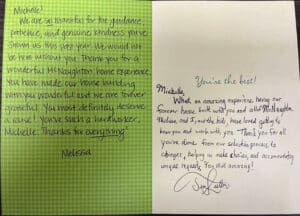 Michelle!
We are so thankful for the guidance,
patience, and genuine kindness you've
shown us this past year. We would not
be here without you. Thank you for a
wonderful McNaughton home experience.
You have made our home building
with you wonderful and we are forever
grateful. You most definitely deserve
a raise! You've such a hard worker,
Michelle. Thanks for everything!
Melissa
You're the best!
Michelle,
What an amazing experience having our
forever home built with you and
and I, and the kids, have loved getting to
know you and work with you. Thank you for all
you've done from our selection process to
changes, helping us make choices, and accommodating
unique requests. You did amazing!